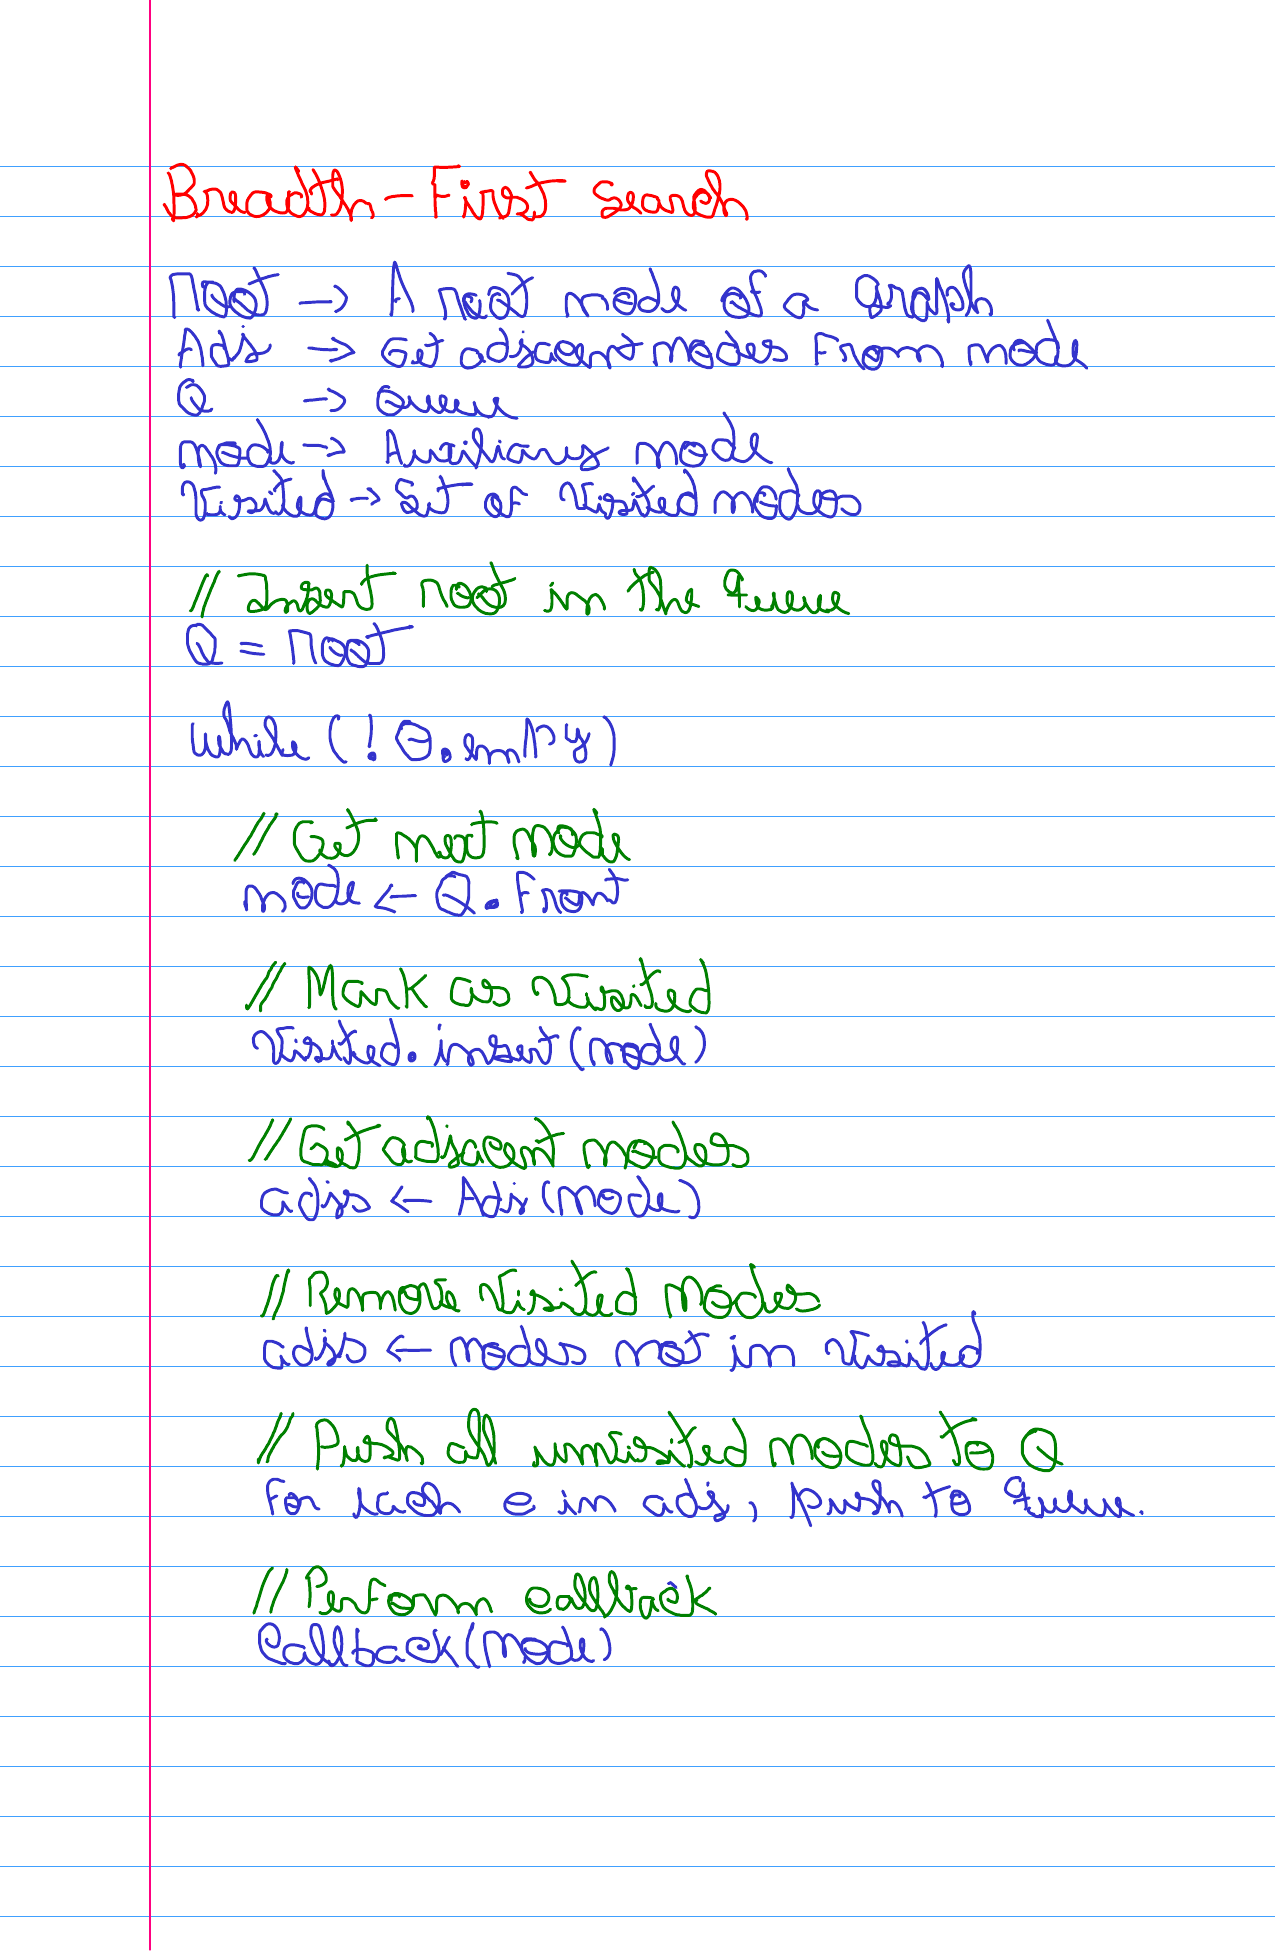 Breadth-First Search
root → A root node of a graph
Adj → Get adjacent nodes from node
Q → Queue
node → Auxiliary node
Visited → Set of visited nodes
// Insert root in the queue
Q = root
while (!Q.empty)
// Get next node
node ← Q.Front
// Mark as visited
Visited.insert(node)
// Get adjacent nodes
adjs ← Adj(node)
// Remove visited nodes
adjs ← nodes not in visited
// Push all unvisited nodes to Q
For each e in adj, push to queue.
// Perform callback
Callback(node)